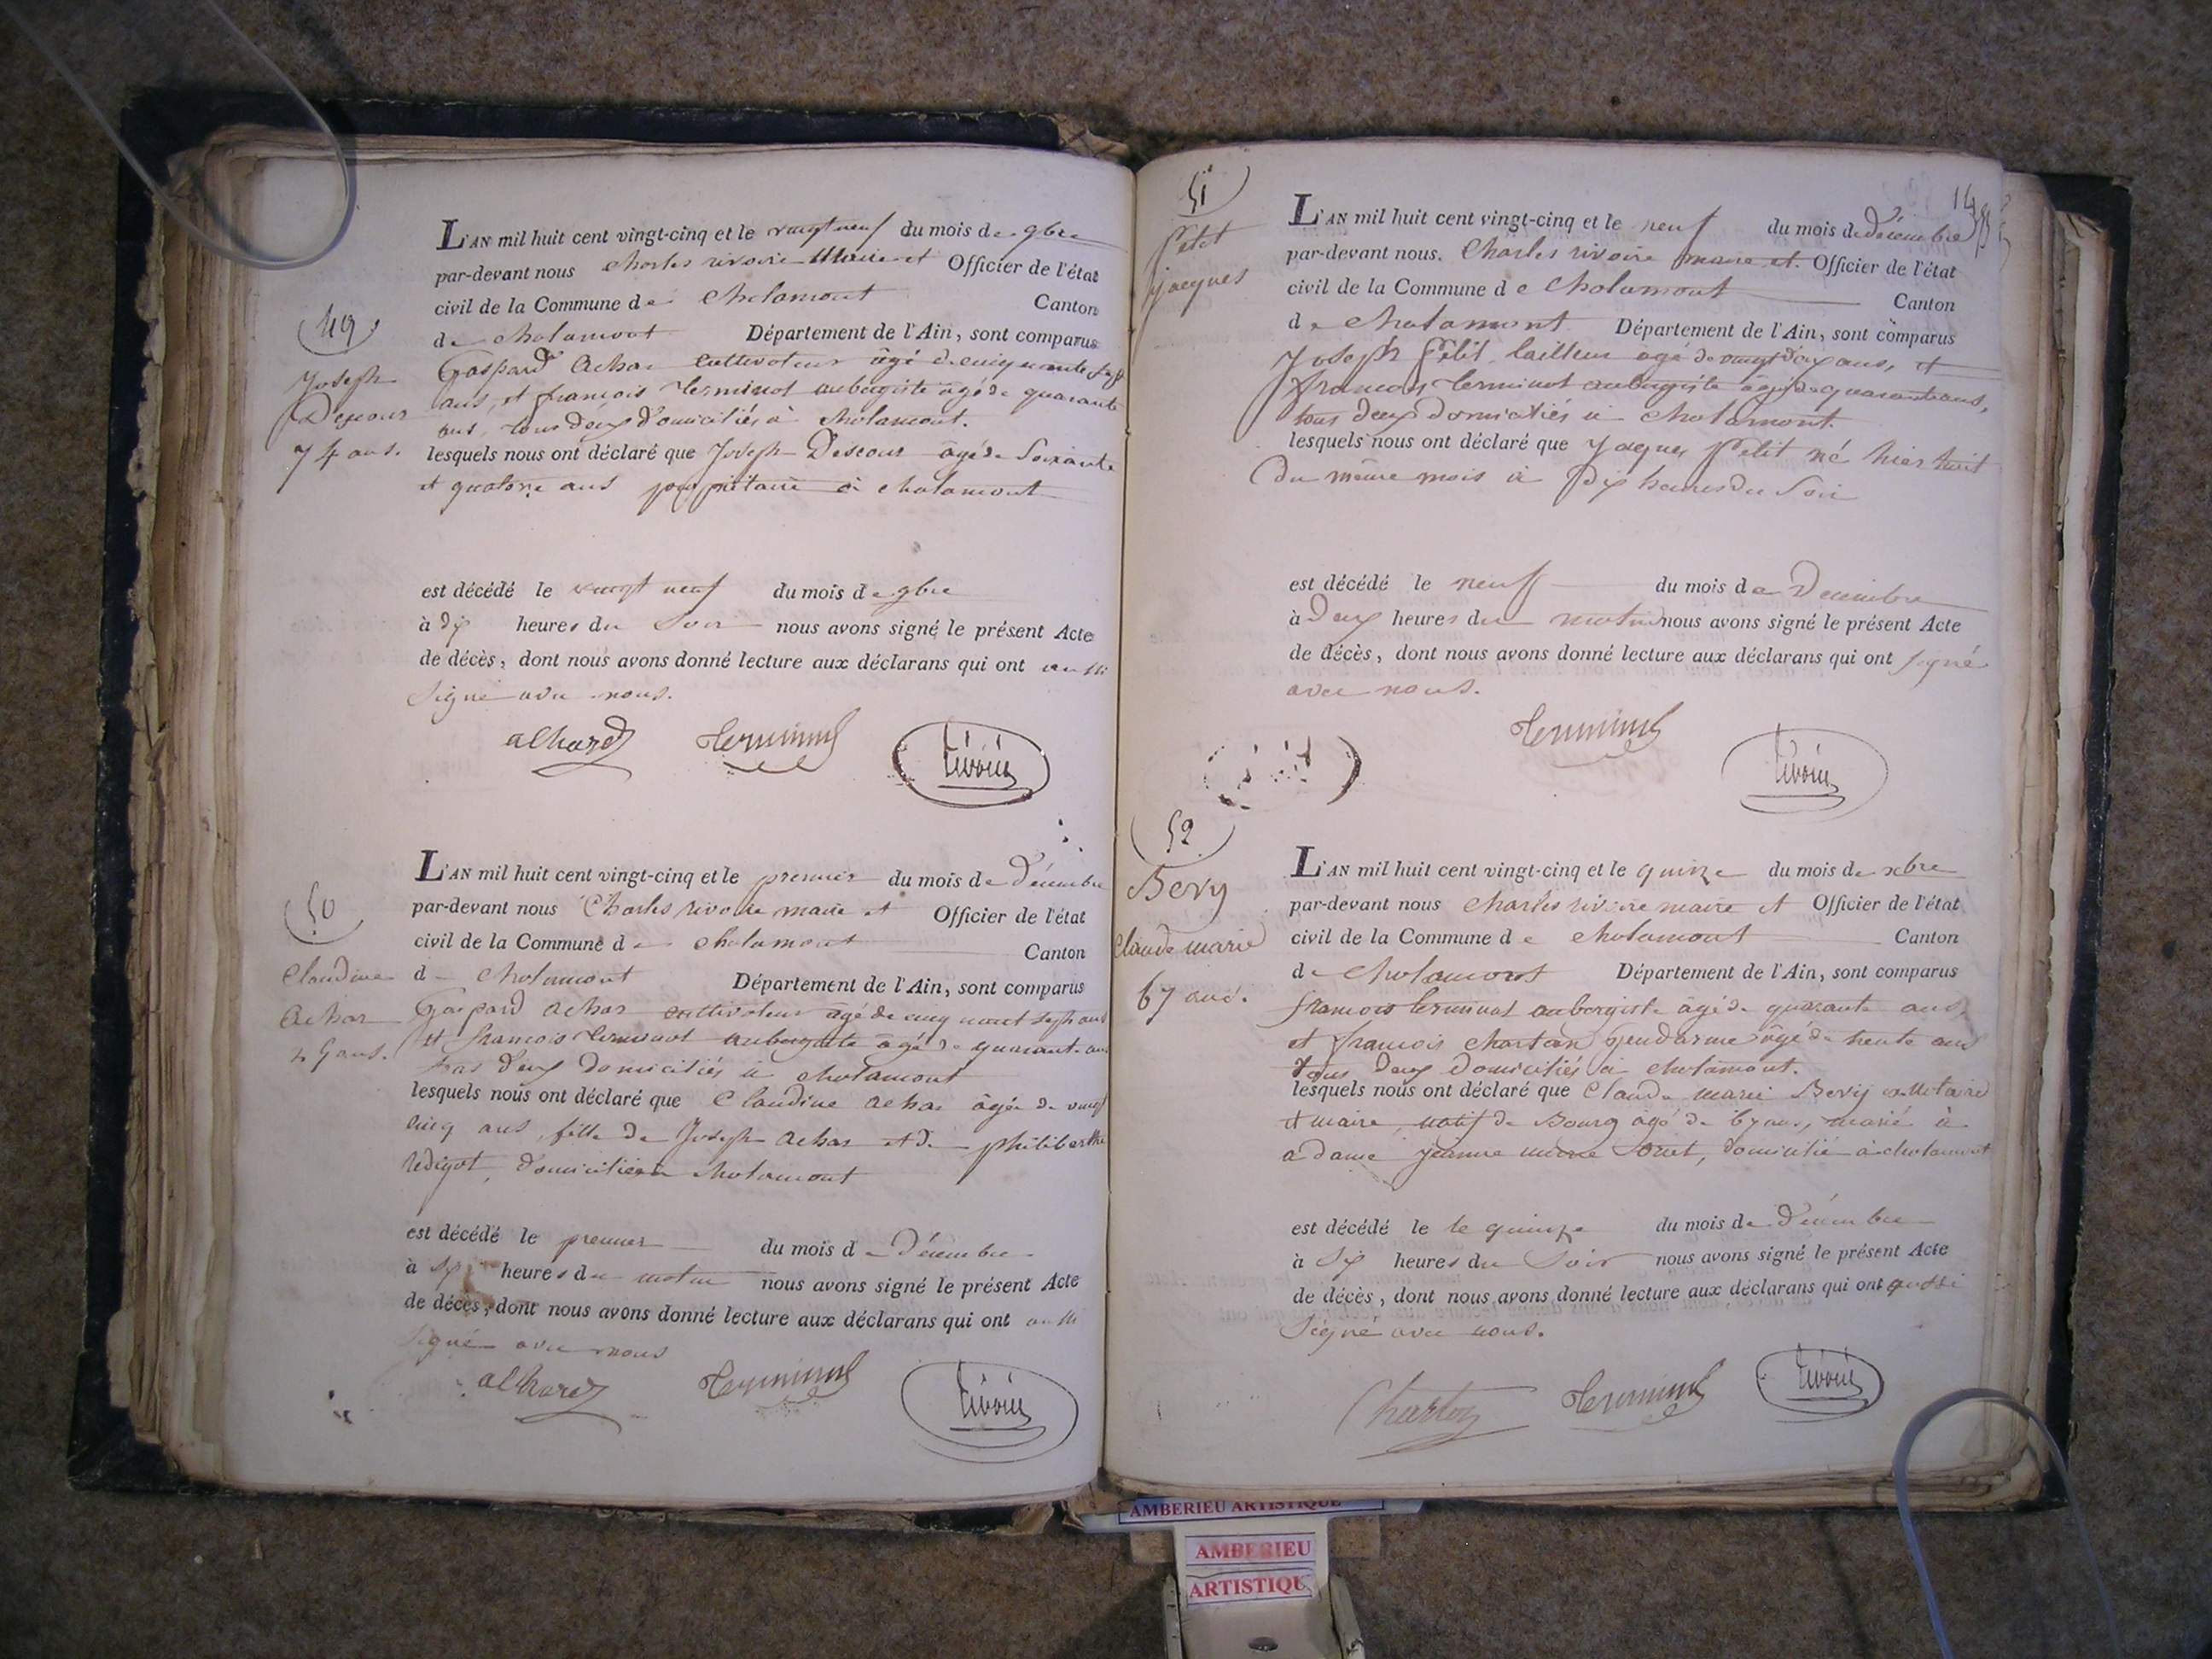 49
Joseph
Descour
74 ans.
L'AN mil huit cent vingt-cinq et le vingt neuf du mois de 9bre
par-devant nous Charles rivoire Maire et Officier de l'état
civil de la Commune de Chalamont Canton
de chalamont Département de l'Ain, sont comparus
Gaspard Achar cultivateur âgé de cinquante sept
ans, et françois Terminot aubergiste âgé de quarante
ans, tous deux domiciliés à chalamont.
lesquels nous ont déclaré que Joseph Descour âgé de Soixante
et quatorze ans propriétaire à chalamont
est décédé le vingt neuf du mois de 9bre
à dix heures du Soir nous avons signé le présent Acte
de décès, dont nous avons donné lecture aux déclarans qui ont aussi
signé avec nous.
achard Terminot rivoire
50
Claudine
Achar
25 ans.
L'AN mil huit cent vingt-cinq et le premier du mois de Décembre
par-devant nous Charles rivoire maire et Officier de l'état
civil de la Commune de chalamont Canton
de chalamont Département de l'Ain, sont comparus
Gaspard achar cultivateur âgé de cinquante sept ans
et francois Terminot aubergiste âgé de quarante ans
tous deux domiciliés à chalamont
lesquels nous ont déclaré que Claudine achar âgée de vingt
cinq ans, fille de Joseph achar et de philiberthe
domiciliée à chalamont
est décédé le premier du mois de Décembre
à heures du matin nous avons signé le présent Acte
de décès, dont nous avons donné lecture aux déclarans qui ont aussi
signé avec nous
achard Terminot rivoire
51
Petit
jacques
L'AN mil huit cent vingt-cinq et le neuf du mois de Décembre
par-devant nous. Charles rivoire maire et Officier de l'état
civil de la Commune de Chalamont Canton
de chalamont Département de l'Ain, sont comparus
Joseph Petit tailleur agé de ans, et
francois Terminot aubergiste âgé de quarante ans,
tous deux domiciliés à chalamont.
lesquels nous ont déclaré que Jaques Petit né hier huit
du même mois à Dix heures du Soir
est décédé le neuf du mois de Décembre
à Deux heures du matin nous avons signé le présent Acte
de décès, dont nous avons donné lecture aux déclarans qui ont signé
avec nous.
Terminot rivoire
52
Bevy
Claude marie
67 ans.
L'AN mil huit cent vingt-cinq et le quinze du mois de xbre
par-devant nous Charles rivoire maire et Officier de l'état
civil de la Commune de chalamont Canton
de chalamont Département de l'Ain, sont comparus
francois terminot aubergiste âgé de quarante ans,
et francois gendarme âgé de trente ans
tous deux domiciliés à chalamont.
lesquels nous ont déclaré que Claude marie Bevy
et maire, natif de Bourg âgé de 67 ans, marié à
a dame jeanne marie domicilié à chalamont
est décédé le le quinze du mois de Décembre
à heures du Soir nous avons signé le présent Acte
de décès, dont nous avons donné lecture aux déclarans qui ont aussi
Signé avec nous.
Terminot rivoire
AMBERIEU ARTISTIQUE
AMBERIEU
ARTISTIQU